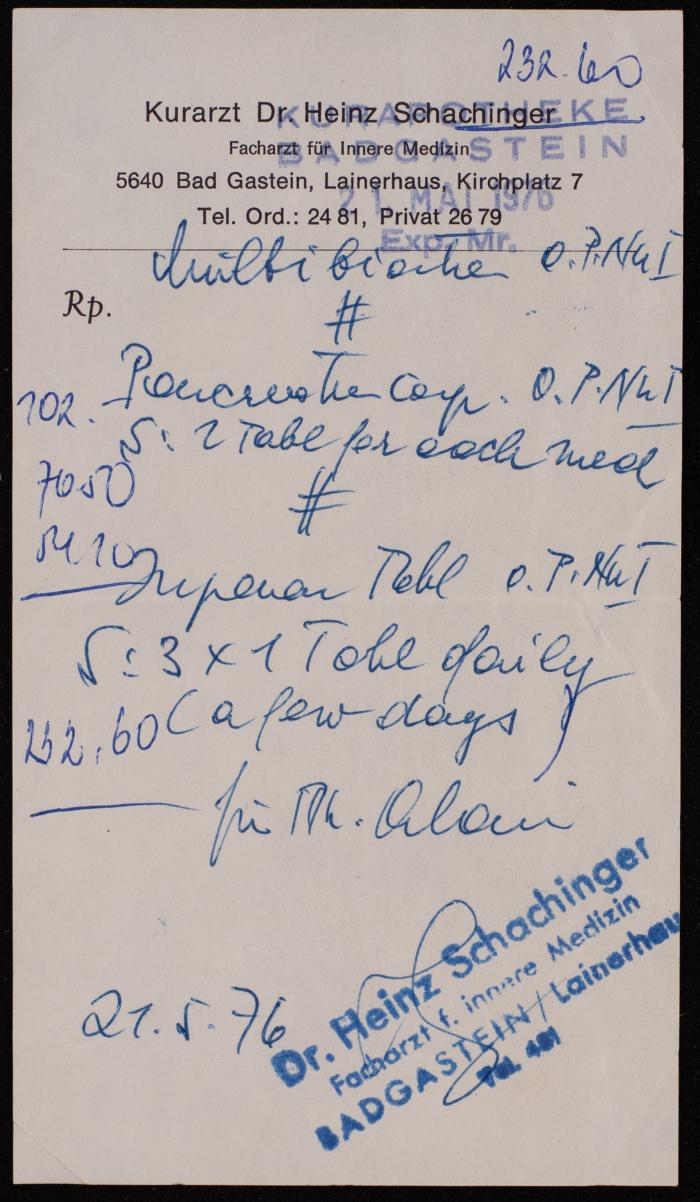 232.60
Kurarzt Dr. Heinz Schachinger
Facharzt für Innere Medizin
5640 Bad Gastein, Lainerhaus, Kirchplatz 7
Tel. Ord.: 24 81, Privat 26 79
KURAPOTHEKE
BADGASTEIN
21. MAI 1976
Exp. Mr.
O.P.No I
Rp.
#
102. comp. O.P.No I
S: 2 Tabl for each meal
70.50
#
54.10 Tabl O.P.No I
S: 3 x 1 Tabl daily
(a few days)
232.60
für
21.5.76
Dr. Heinz Schachinger
Facharzt f. innere Medizin
BADGASTEIN, Lainerhau
Tel. 481